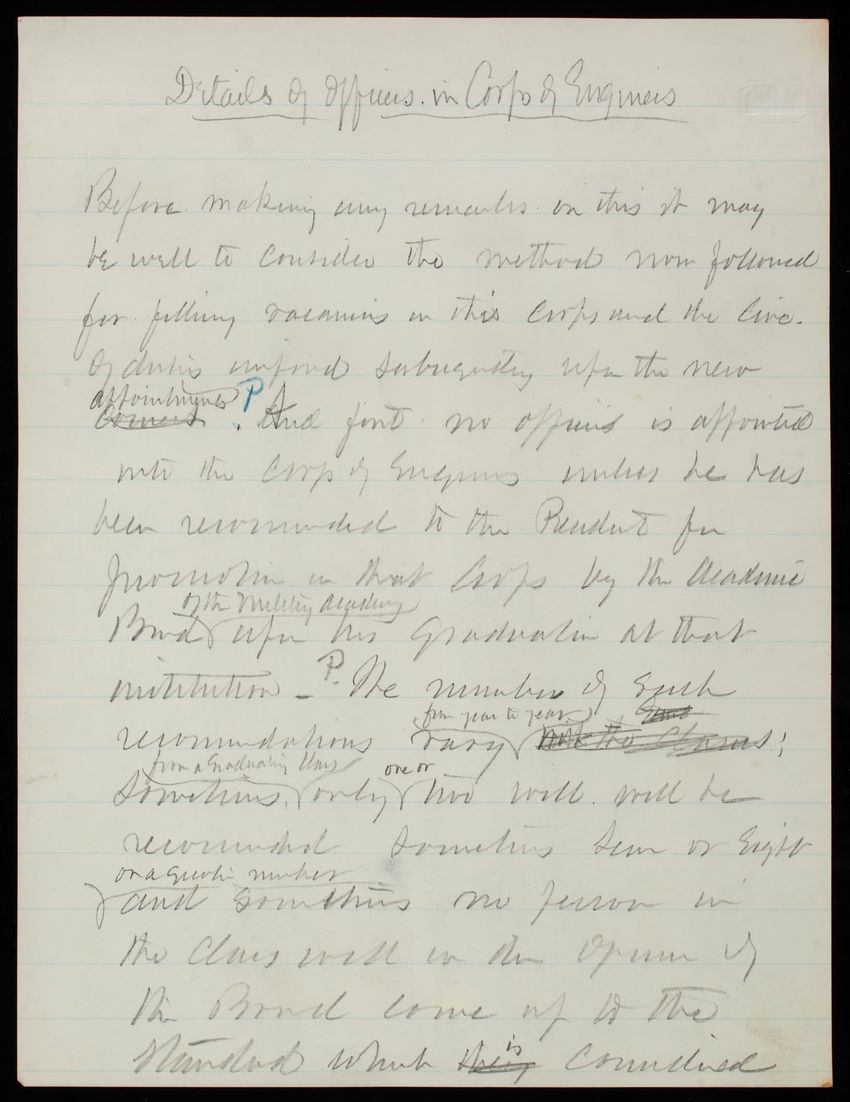 Details of Officers in Corps of Engineers
Before making any remarks on this it may
be well to consider the method now followed
for filling vacancies in this Corps and the
of duties imposed subsequently upon the new
appointments P
. And first no officer is appointed
into the Corps of Engineers unless he has
been recommended to the President for
promotion in that Corps by the Academic
of the Military Academy
Board upon his graduation at that
institution – P. The number of such
from year to year
recomendations vary with the Classes;
from a Graduating Class one or
Sometimes, only two will will be
recomended sometimes seven or Eight
or a greater number
and sometimes no person in
the Class will in the Opinion of
the Board come up to the
is
Standard which they considered